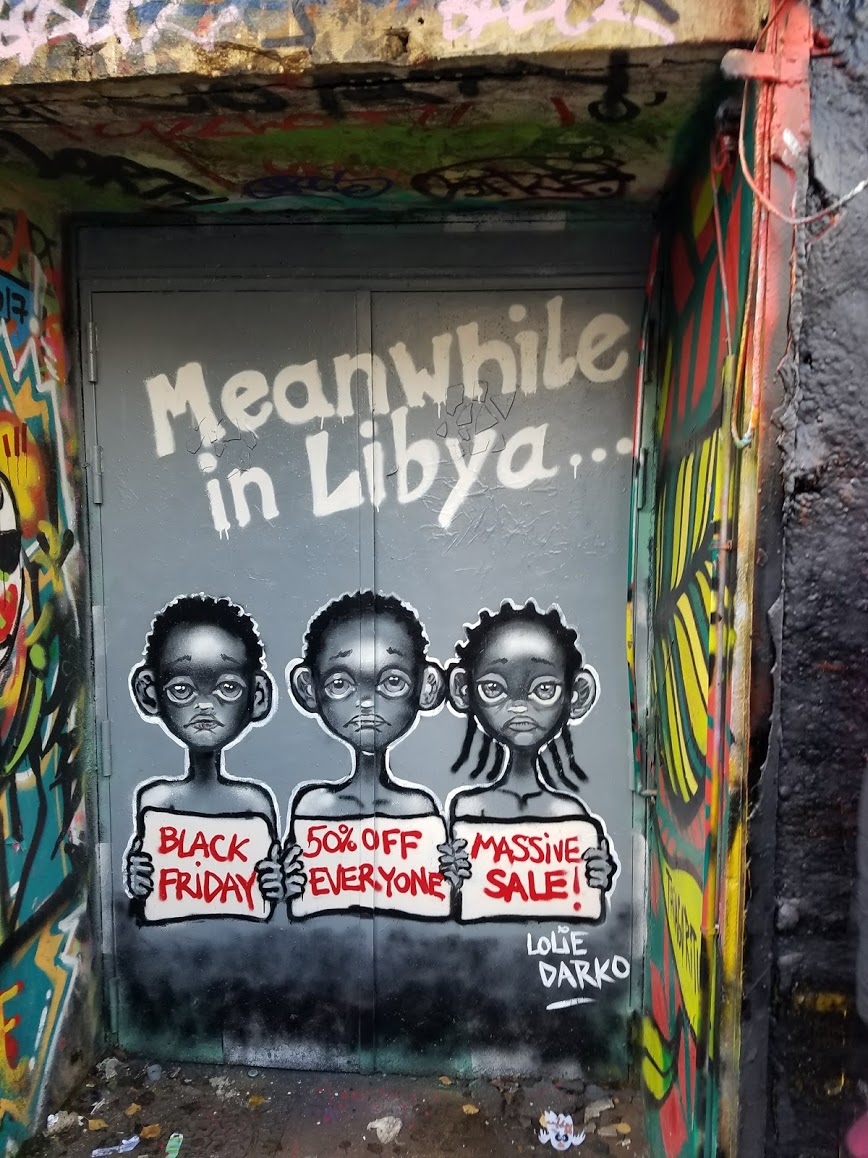 Meanwhile
in Libya...
BLACK
FRIDAY
50% OFF
EVERYONE
MASSIVE
SALE!
LOLIE
DARKO